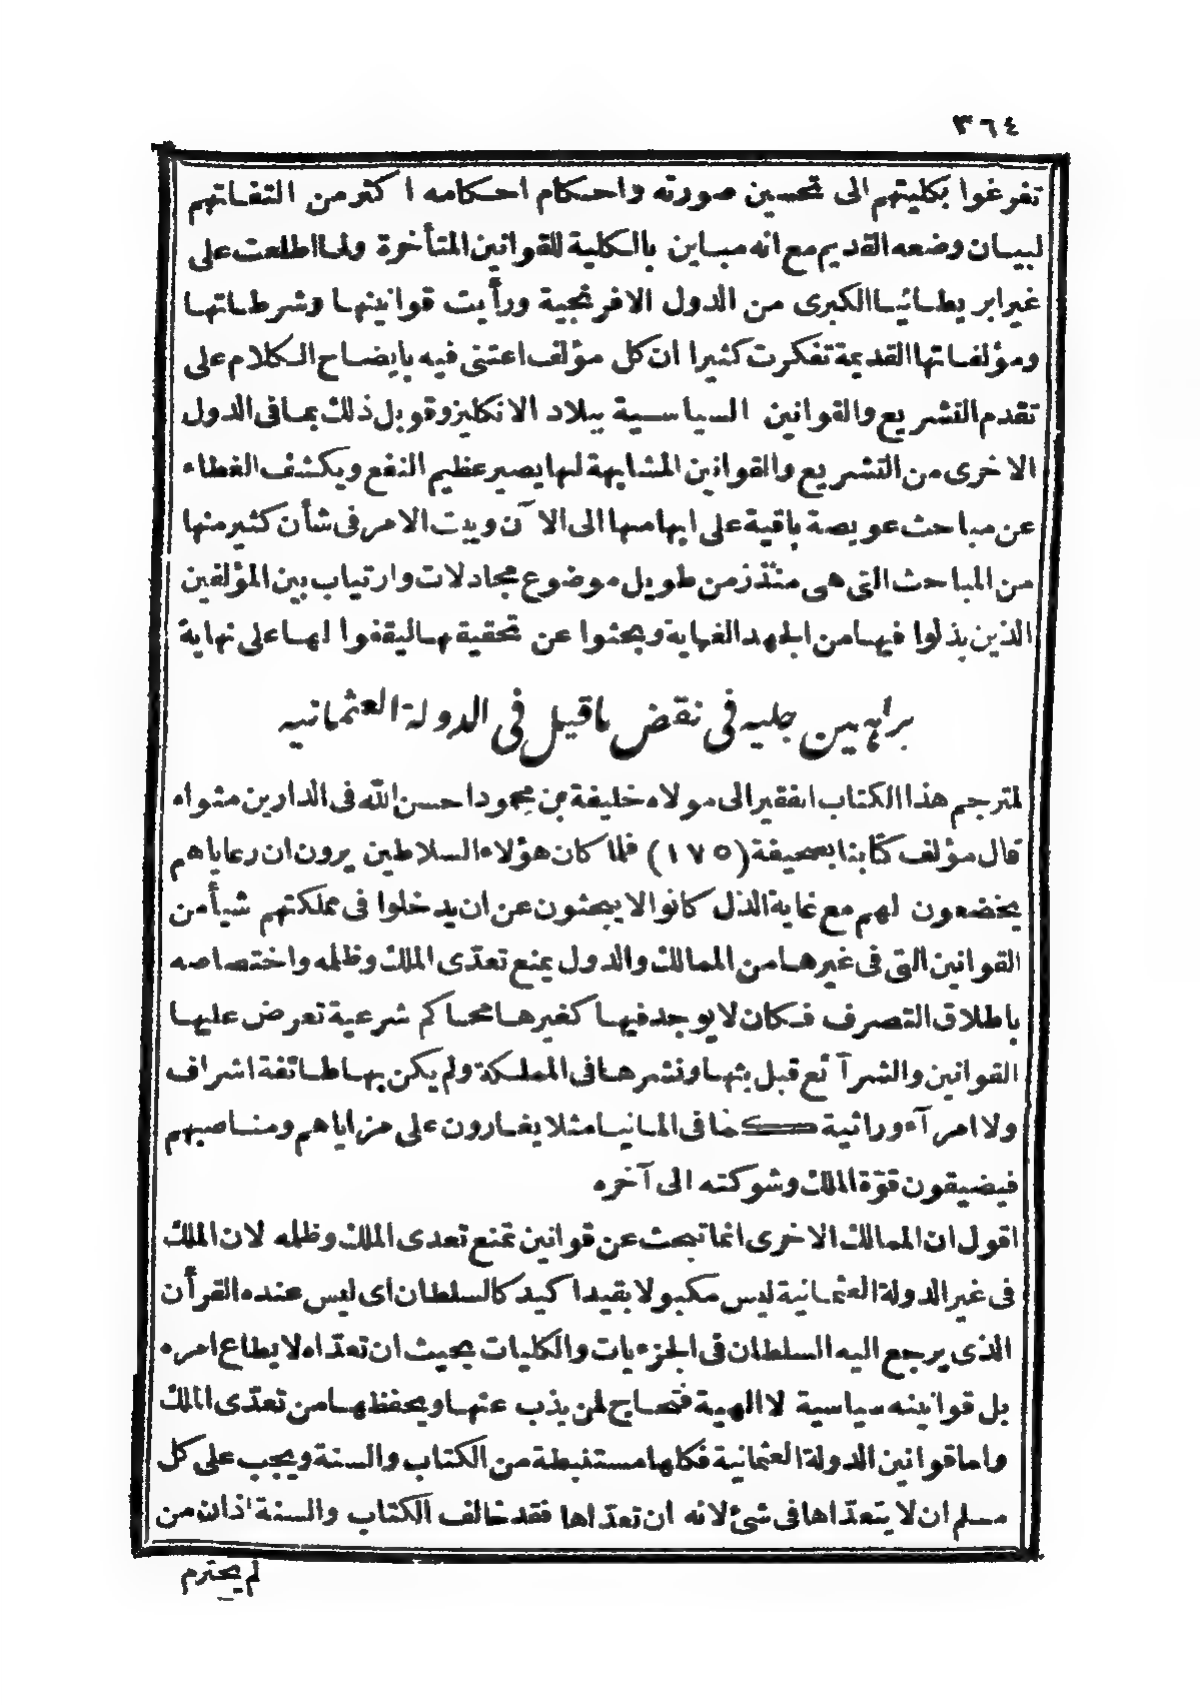 ٣٦٤
تفرغوا بكليتهم الى تحسين صورته واحكام احكامه اكثر من التفاتهم
لبيان وضعه القديم مع انه مباين بالكلية للقوانين المتأخرة ولما اطلعت على
غير ابريطانيا الكبرى من الدول الافرنجية ورأيت قوانينها وشرطاتها
ومؤلفاتها القديمة تفكرت كثيرا ان كل مؤلف اعتنى فيه بايضاح الكلام على
تقدم التشريع والقوانين السياسية ببلاد الانكليز وقوبل ذلك بما فى الدول
الاخرى من التشريع والقوانين المشابهة لها يصير عظيم النفع ويكشف الغطاء
عن مباحث عويصة باقية على ابهامها الى الآن ويبت الامر فى شأن كثير منها
من المباحث التى هى منذ زمن طويل موضوع مجادلات وارتياب بين المؤلفين
الذين بذلوا فيها من الجهد الغاية وبحثوا عن تحقيقها ليقفوا لها على نهاية
براهين جليه فى نقض ما قيل فى الدولة العثمانيه
لمترجم هذا الكتاب الفقير الى مولاه خليفة بن محمود احسن الله فى الدارين مثواه
قال مؤلف كتابنا بصحيفة (١٧٥) فلما كان هؤلاء السلاطين يرون ان رعاياهم
يخضعون لهم مع غاية الذل كانوا لا يبحثون عن ان يدخلوا فى مملكتهم شيأ من
القوانين التى فى غيرها من الممالك والدول يمنع تعدّى الملك وظلمه واختصاصه
باطلاق التصرف فكان لا يوجد فيها كغيرها محاكم شرعية تعرض عليها
القوانين والشرآئع قبل بثها ونشرها فى المملكة ولم يكن بها طائفة اشراف
ولا امرآء وراثية كما فى المانيا مثلا يغارون على مزاياهم ومناصبهم
فيضيقون قوّة الملك وشوكته الى آخره
اقول ان الممالك الاخرى انما تبحث عن قوانين تمنع تعدى الملك وظلمه لان الملك
فى غير الدولة العثمانية ليس مكبولا بقيد اكيد كالسلطان اى ليس عنده القرأن
الذى يرجع اليه السلطان فى الجزءيات والكليات بحيث ان تعدّاه لا يطاع امره
بل قوانينه سياسية لا الهية فتحتاج لمن يذب عنها ويحفظها من تعدّى الملك
واما قوانين الدولة العثمانية فكلها مستنبطة من الكتاب والسنة ويجب على كل
مسلم ان لا يتعدّاها فى شئ لانه ان تعدّاها فقد خالف الكتاب والسنة اذ ان من
لم يحترم